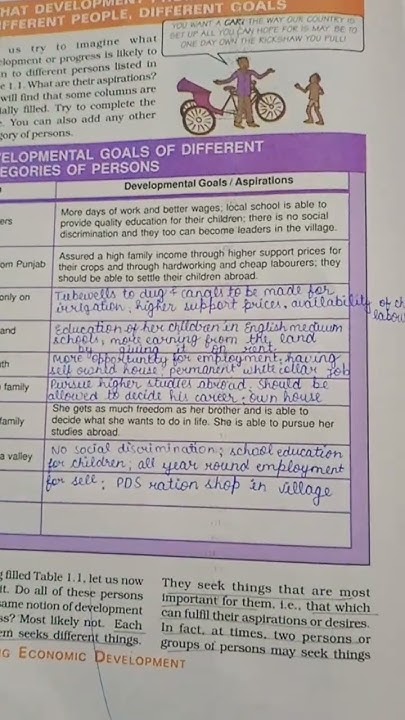 HAT DEVELOPMENT P
FFERENT PEOPLE, DIFFERENT GOALS
us try to imagine what
elopment or progress is likely to
n to different persons listed in
e 1.1. What are their aspirations?
will find that some columns are
ially filled. Try to complete the
. You can also add any other
gory of persons.
YOU WANT A CAR? THE WAY OUR COUNTRY IS
SET UP ALL YOU CAN HOPE FOR IS MAY BE TO
ONE DAY OWN THE RICKSHAW YOU PULL!
ELOPMENTAL GOALS OF DIFFERENT
EGORIES OF PERSONS
Developmental Goals / Aspirations
ers
More days of work and better wages; local school is able to
provide quality education for their children; there is no social
discrimination and they too can become leaders in the village.
om Punjab
Assured a high family income through higher support prices for
their crops and through hardworking and cheap labourers; they
should be able to settle their children abroad.
only on
Tubewells to dug & canals to be made for
irrigation, higher support prices, availability of ch
labou
and
Education of her children in English medium
schools, more earning from the land
by giving it on rent.
th
More opportunity for employment, having
self owned house, permanent white collar job
family
Pursue higher studies abroad, should be
allowed to decide his career; own house
family
She gets as much freedom as her brother and is able to
decide what she wants to do in life. She is able to pursue her
studies abroad.
a valley
No social discrimination; school education
for children; all year round employment
for sell; PDS ration shop in village
filled Table 1.1, let us now
it. Do all of these persons
same notion of development
ss? Most likely not. Each
em seeks different things.
They seek things that are most
important for them, i.e., that which
can fulfil their aspirations or desires.
In fact, at times, two persons or
groups of persons may seek things
NG ECONOMIC DEVELOPMENT